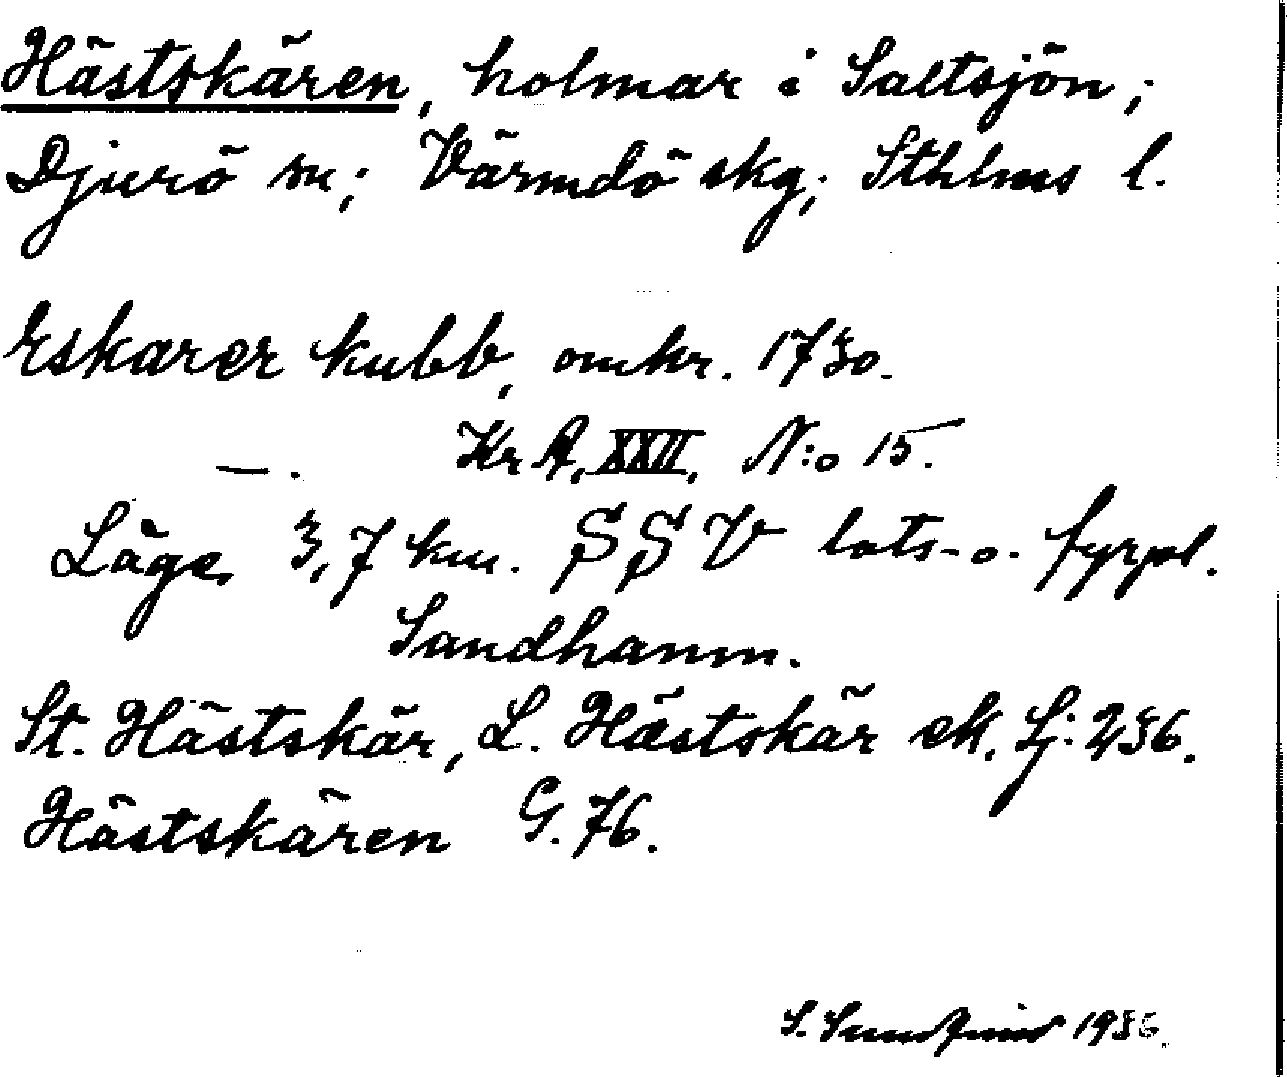 Hästskären, holmar i Saltsjön;
Djurö sn; Värmdö skg; Sthlms l.
Eskarer kubb, omkr. 1730.
—. Kr A, XXII, N:o 15.
Läge 3,7 km. SSV lots- o. fyrpl.
Sandhamn.
St. Hästskär, L. Hästskär ek. Lj: 236.
Hästskären G. 76.
S. 1936.